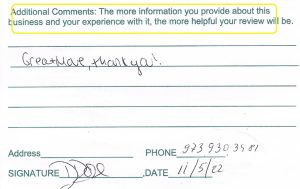 Additional Comments: The more information you provide about this
business and your experience with it, the more helpful your review will be.
Great Move, thank you!
Address PHONE 973 930 3481
SIGNATURE DATE 11/5/22